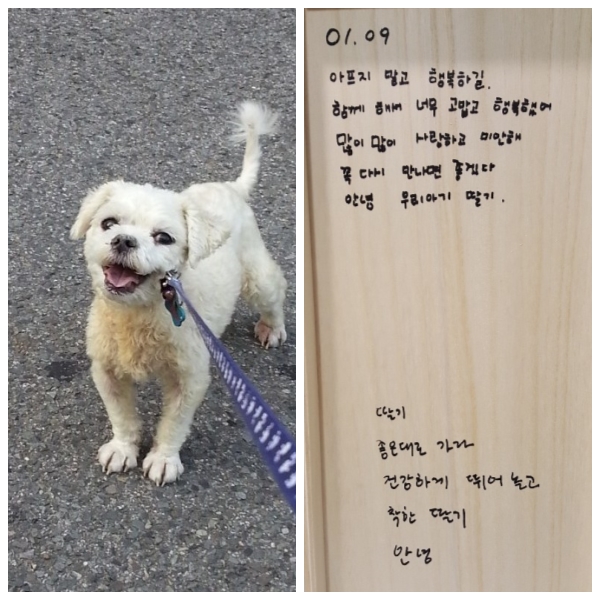 01.09
아프지 말고 행복하길.
함께 해서 너무 고맙고 행복했어
많이 많이 사랑하고 미안해
꼭 다시 만나면 좋겠다
안녕 우리아기 딸기.
딸기
좋은대로 가라
건강하게 뛰어 놀고
착한 딸기
안녕